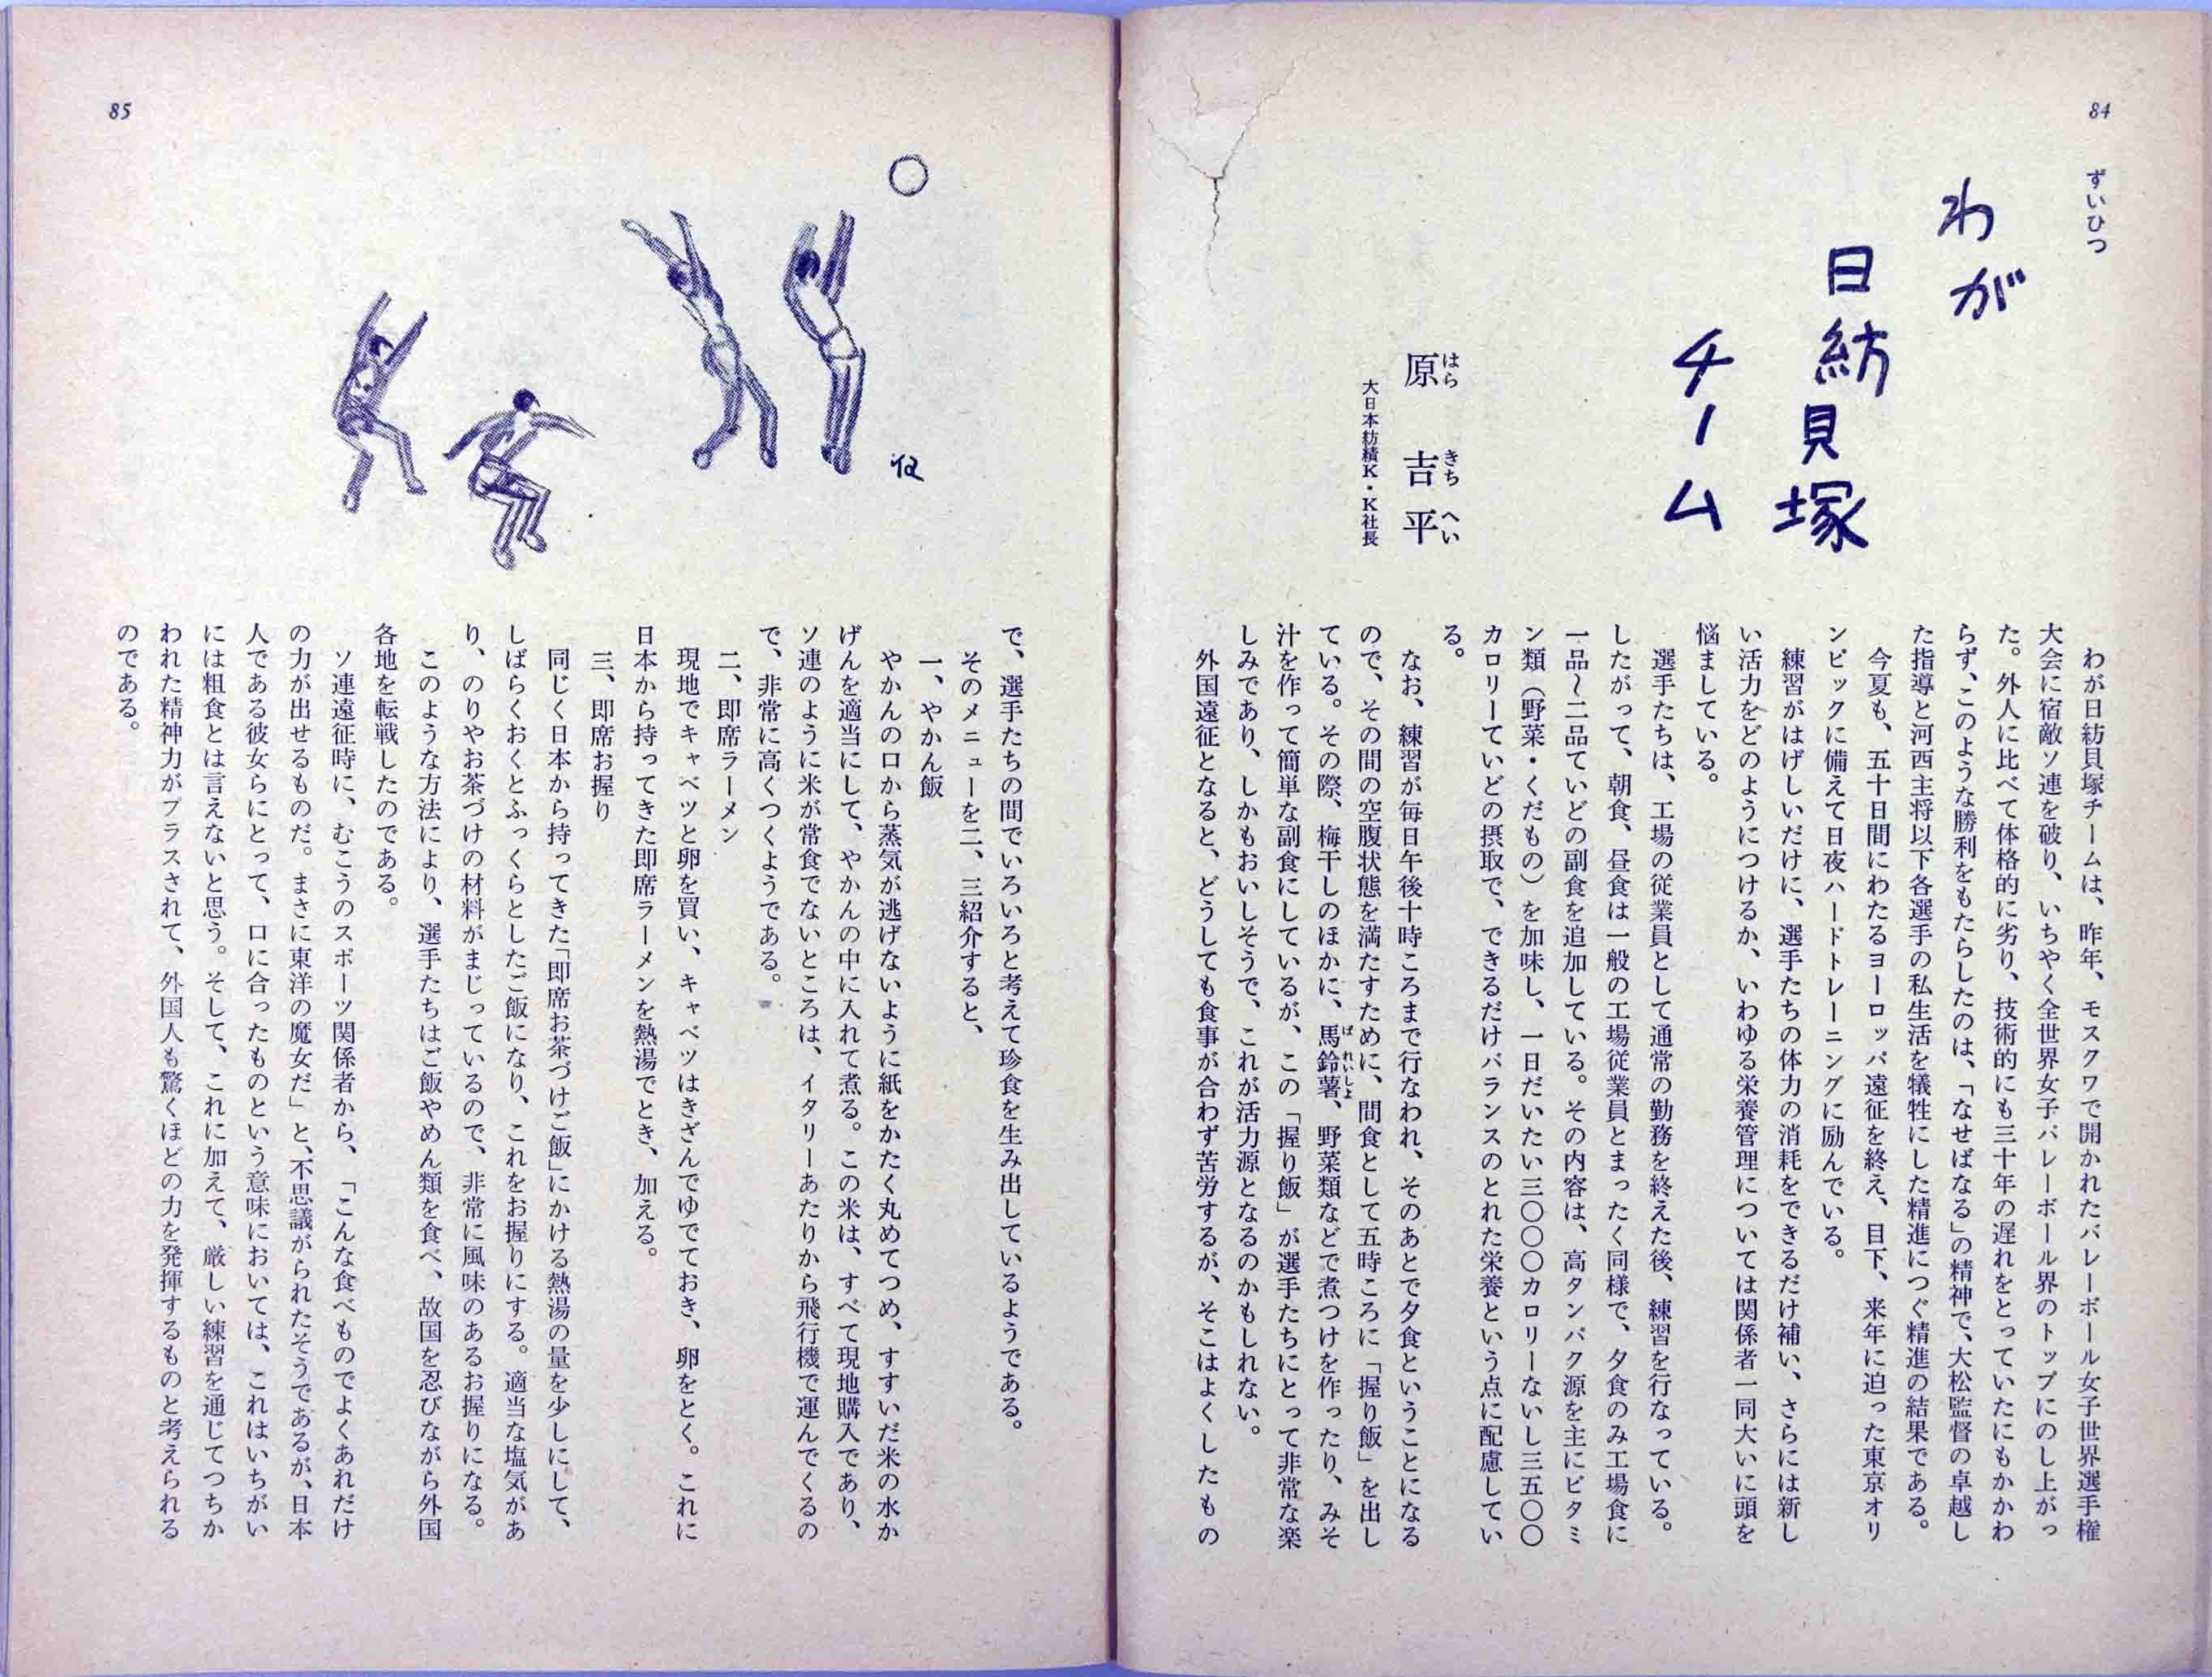 84
ずいひつ
わが
日紡貝塚
チーム
原吉平
はらきちへい
大日本紡績K・K社長
わが日紡貝塚チームは、昨年、モスクワで開かれたバレーボール女子世界選手権
大会に宿敵ソ連を破り、いちやく全世界女子バレーボール界のトップにのし上がっ
た。外人に比べて体格的に劣り、技術的にも三十年の遅れをとっていたにもかかわ
らず、このような勝利をもたらしたのは、「なせばなる」の精神で、大松監督の卓越し
た指導と河西主将以下各選手の私生活を犠牲にした精進につぐ精進の結果である。
今夏も、五十日間にわたるヨーロッパ遠征を終え、目下、来年に迫った東京オリ
ンピックに備えて日夜ハードトレーニングに励んでいる。
練習がはげしいだけに、選手たちの体力の消耗をできるだけ補い、さらには新し
い活力をどのようにつけるか、いわゆる栄養管理については関係者一同大いに頭を
悩ましている。
選手たちは、工場の従業員として通常の勤務を終えた後、練習を行なっている。
したがって、朝食、昼食は一般の工場従業員とまったく同様で、夕食のみ工場食に
一品〜二品ていどの副食を追加している。その内容は、高タンパク源を主にビタミ
ン類（野菜・くだもの）を加味し、一日だいたい三〇〇〇カロリーないし三五〇〇
カロリーていどの摂取で、できるだけバランスのとれた栄養という点に配慮してい
る。
なお、練習が毎日午後十時ころまで行なわれ、そのあとで夕食ということになる
ので、その間の空腹状態を満たすために、間食として五時ころに「握り飯」を出し
ている。その際、梅干しのほかに、馬鈴薯、野菜類などで煮つけを作ったり、みそ
ばれいしよ
汁を作って簡単な副食にしているが、この「握り飯」が選手たちにとって非常な楽
しみであり、しかもおいしそうで、これが活力源となるのかもしれない。
外国遠征となると、どうしても食事が合わず苦労するが、そこはよくしたもの
85
征
で、選手たちの間でいろいろと考えて珍食を生み出しているようである。
そのメニューを二、三紹介すると、
一、やかん飯
やかんの口から蒸気が逃げないように紙をかたく丸めてつめ、すすいだ米の水か
げんを適当にして、やかんの中に入れて煮る。この米は、すべて現地購入であり、
ソ連のように米が常食でないところは、イタリーあたりから飛行機で運んでくるの
で、非常に高くつくようである。
二、即席ラーメン
現地でキャベツと卵を買い、キャベツはきざんでゆでておき、卵をとく。これに
日本から持ってきた即席ラーメンを熱湯でとき、加える。
三、即席お握り
同じく日本から持ってきた「即席お茶づけご飯」にかける熱湯の量を少しにして、
しばらくおくとふっくらとしたご飯になり、これをお握りにする。適当な塩気があ
り、のりやお茶づけの材料がまじっているので、非常に風味のあるお握りになる。
このような方法により、選手たちはご飯やめん類を食べ、故国を忍びながら外国
各地を転戦したのである。
ソ連遠征時に、むこうのスポーツ関係者から、「こんな食べものでよくあれだけ
の力が出せるものだ。まさに東洋の魔女だ」と、不思議がられたそうであるが、日本
人である彼女らにとって、口に合ったものという意味においては、これはいちがい
には粗食とは言えないと思う。そして、これに加えて、厳しい練習を通じてつちか
われた精神力がプラスされて、外国人も驚くほどの力を発揮するものと考えられる
のである。